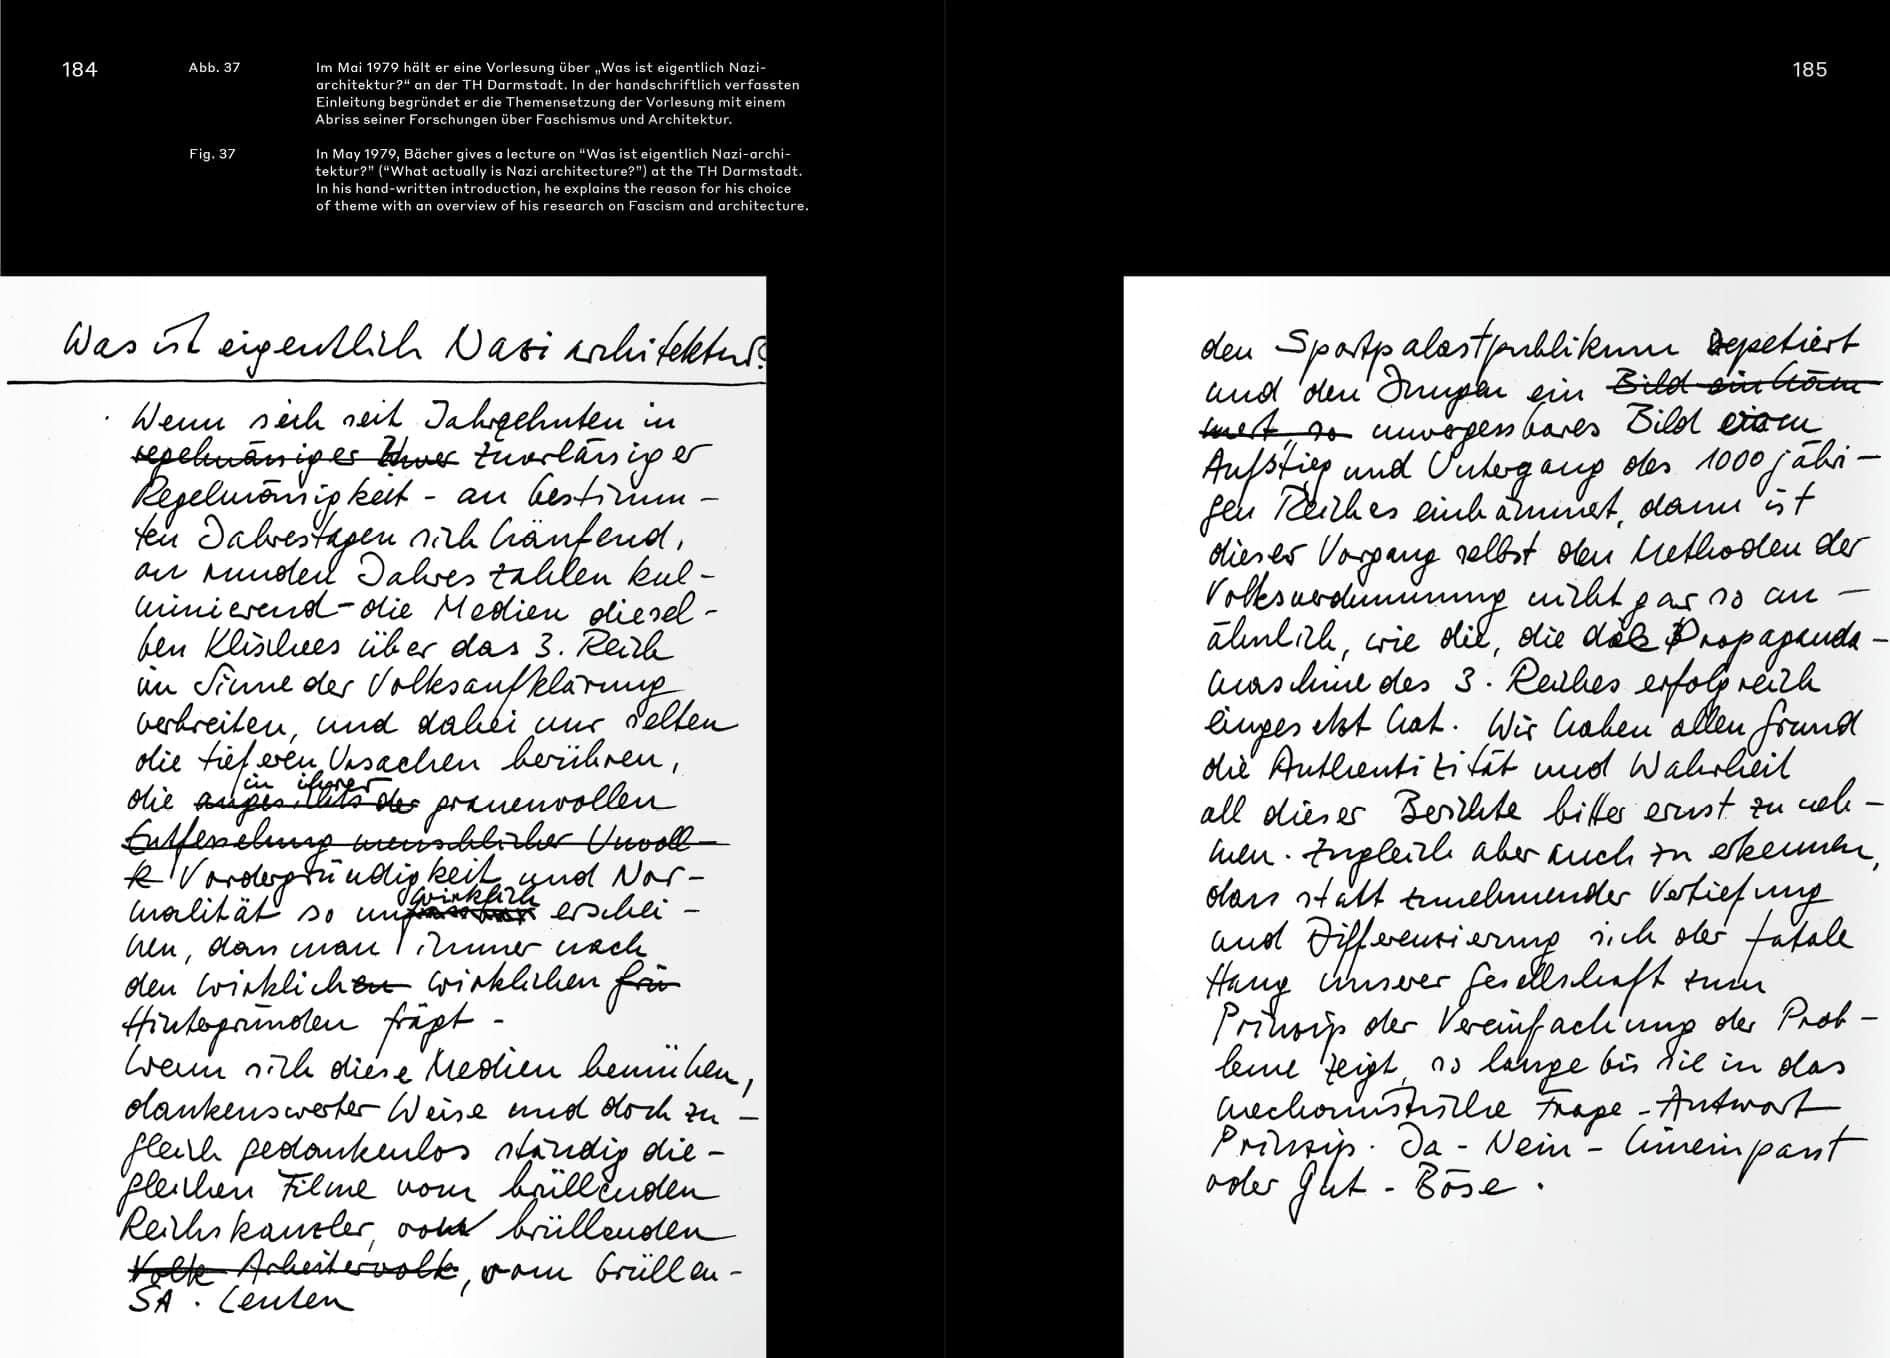 184
Abb. 37
Im Mai 1979 hält er eine Vorlesung über „Was ist eigentlich Nazi-
architektur?“ an der TH Darmstadt. In der handschriftlich verfassten
Einleitung begründet er die Themensetzung der Vorlesung mit einem
Abriss seiner Forschungen über Faschismus und Architektur.
Fig. 37
In May 1979, Bächer gives a lecture on “Was ist eigentlich Nazi-archi-
tektur?” (“What actually is Nazi architecture?”) at the TH Darmstadt.
In his hand-written introduction, he explains the reason for his choice
of theme with an overview of his research on Fascism and architecture.
Was ist eigentlich Naziarchitektur?
Wenn sich seit Jahrzehnten in
regelmässiger zuverlässiger
Regelmässigkeit - an bestimm-
ten Jahrestagen sich häufend,
an runden Jahreszahlen kul-
minierend - die Medien diesel-
ben Klischees über das 3. Reich
im Sinne der Volksaufklärung
verbreiten, und dabei nur selten
die tieferen Ursachen berühren,
in ihrer
die angesichts der grauenvollen
Entfesselung menschlicher Unvoll-
k Vordergründigkeit und Nor-
wirklich
malität so un erschei-
nen, dass man immer nach
den wirklichen wirklichen
Hintergründen frägt -
Wenn sich diese Medien bemühen,
dankenswerter Weise und doch zu-
gleich gedankenlos ständig die-
gleichen Filme vom brüllenden
Reichskanzler, vom brüllenden
Volk Arbeitervolk, vom brüllen-
SA. Leuten
185
den Sportpalastpublikum repetiert
und den Jungen ein Bild einhäm
mert, so unvergessbares Bild
Aufstieg und Untergang des 1000 jähri-
gen Reiches einhämmert, dann ist
dieser Vorgang selbst den Methoden der
Volksverdummung nicht gar so un-
ähnlich, wie die, die die Propaganda-
maschine des 3. Reiches erfolgreich
eingesetzt hat. Wir haben allen Grund
die Authentizität und Wahrheit
all dieser Berichte bitter ernst zu neh-
men. Zugleich aber auch zu erkennen,
dass statt zunehmender Vertiefung
und Differenzierung sich der fatale
Hang unserer Gesellschaft zum
Prinzip der Vereinfachung der Prob-
leme zeigt, so lange bis sie in das
mechanistische Frage-Antwort
Prinzip. Ja - Nein - hineinpasst
oder Gut - Böse.